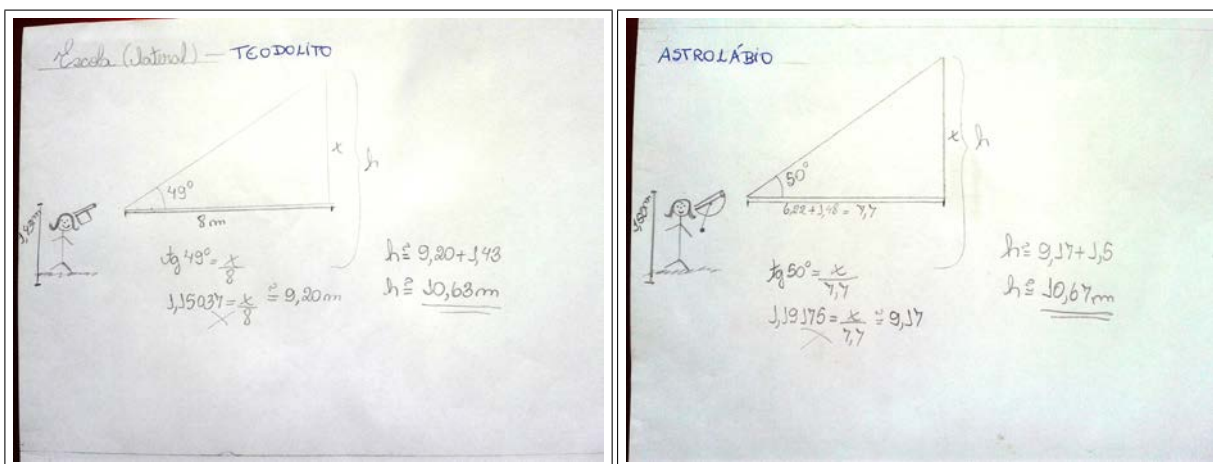 Escola (lateral) — TEODOLITO
x
h
49°
8 m
1,43m
tg 49° = x/8
1,15037 = x/8 ≅ 9,20 m
h ≅ 9,20 + 1,43
h ≅ 10,63 m
ASTROLÁBIO
x
h
50°
6,22 + 1,48 = 7,7
1,50m
tg 50° = x/7,7
1,19175 = x/7,7 ≅ 9,17
h ≅ 9,17 + 1,5
h ≅ 10,67 m